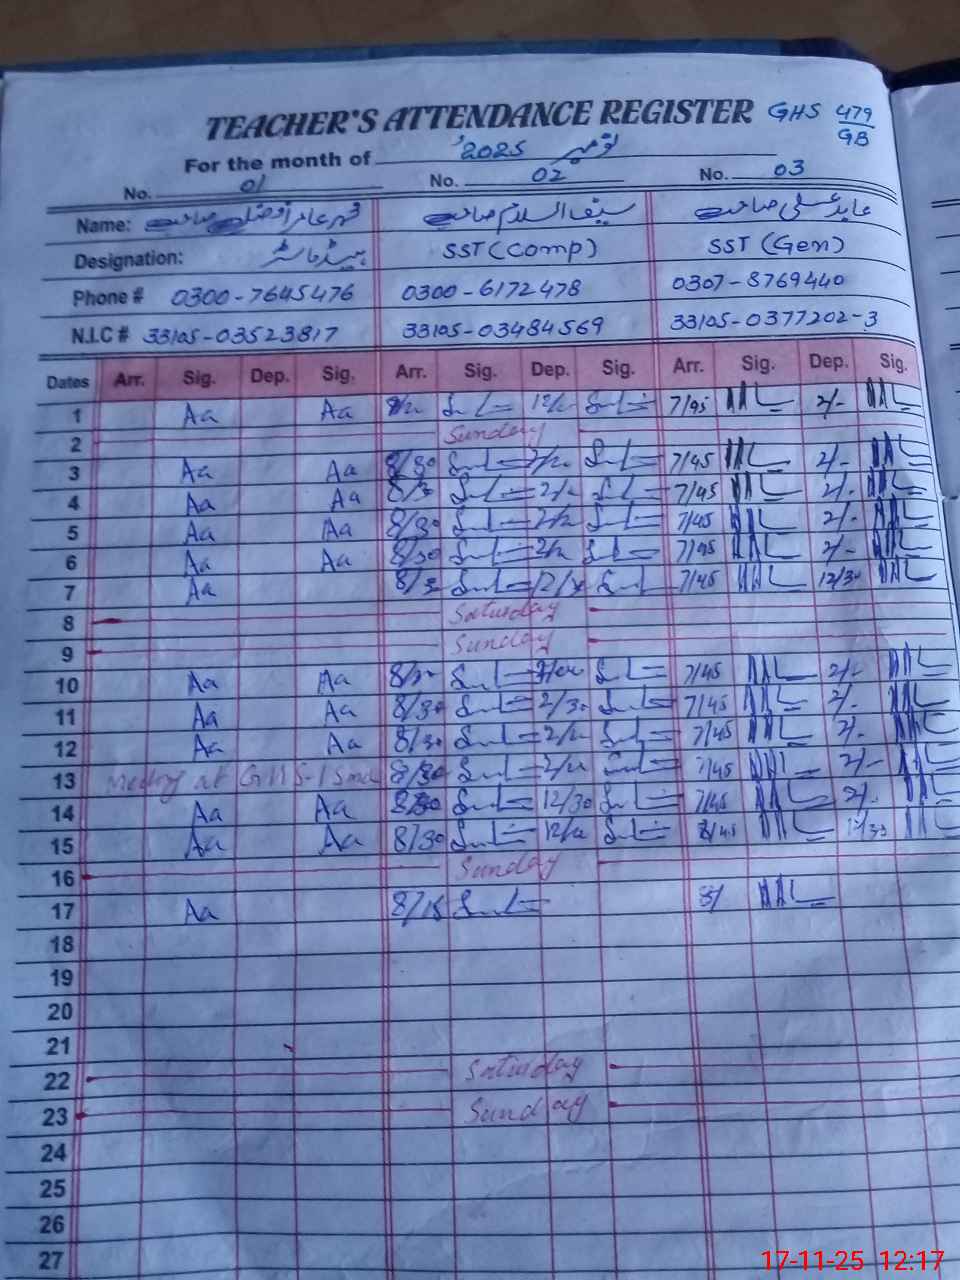 TEACHER'S ATTENDANCE REGISTER GHS 479/GB
For the month of 2025 نومبر
No. 01 No. 02 No. 03
Name: صاحب سیف السلام صاحب عابد علی صاحب
Designation: ہیڈ ماسٹر SST (Comp) SST (Gen)
Phone # 0300-7645476 0300-6172478 0307-8769440
N.I.C # 33105-03523817 33105-03484569 33105-0377202-3
Dates Arr. Sig. Dep. Sig. Arr. Sig. Dep. Sig. Arr. Sig. Dep. Sig.
1 Aa Aa 7/45 2/-
2 Sunday
3 Aa Aa 8/30 7/45 2/-
4 Aa Aa 7/45 2/-
5 Aa Aa 8/30 7/45 2/-
6 Aa Aa 8/30 7/45 2/-
7 Aa 7/45 12/30
8 Saturday
9 Sunday
10 Aa Aa 7/45 2/-
11 Aa Aa 8/30 2/30 7/45 2/-
12 Aa Aa 8/30 7/45 2/-
13 Meeting at GHS-1 8/30 7/45 2/-
14 Aa Aa 8/30 12/30 7/45 2/-
15 Aa Aa 8/30 12/30
16 Sunday
17 Aa 8/15 8/
18
19
20
21
22 Saturday
23 Sunday
24
25
26
27
17-11-25 12:17